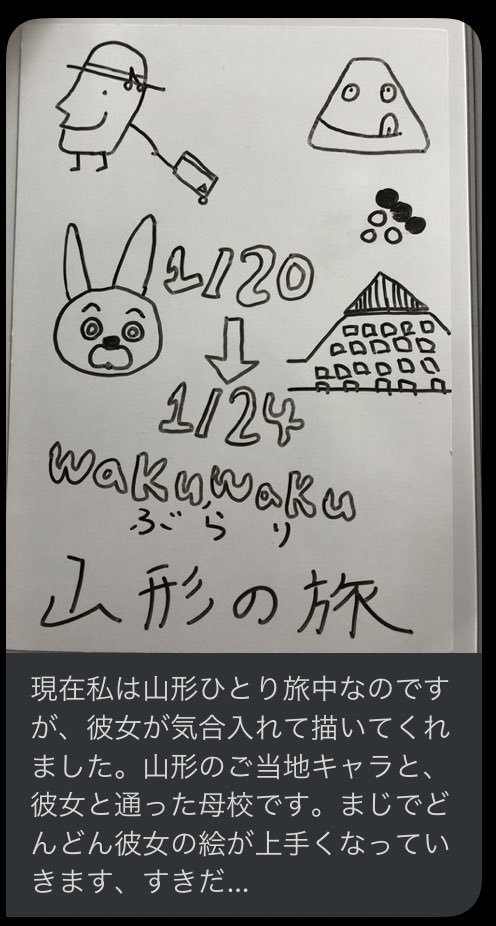 1/20
↓
1/24
wakuwaku
ぶらり
山形の旅
現在私は山形ひとり旅中なのです
が、彼女が気合入れて描いてくれ
ました。山形のご当地キャラと、
彼女と通った母校です。まじでど
んどん彼女の絵が上手くなってい
きます、すきだ...